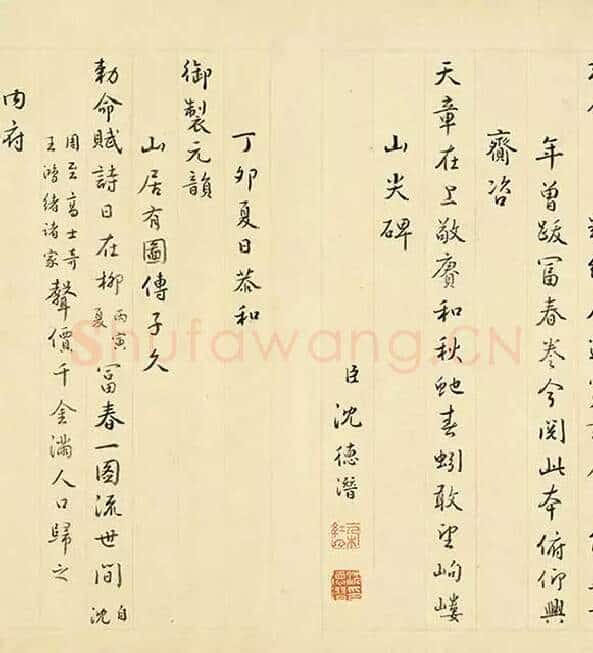 年曾跋冨春卷今閱此本俯仰興
齎咨
天章在上敬賡和秋蛇春蚓敢望岣嶁
山尖碑
臣沈德潛
丁卯夏日恭和
御製元韻
山居有圖傳子久
勅命賦詩日在柳丙寅夏冨春一圖流世間自沈
周至高士奇王鴻緒諸家聲價千金滿人口歸之
內府
Shufawang.CN